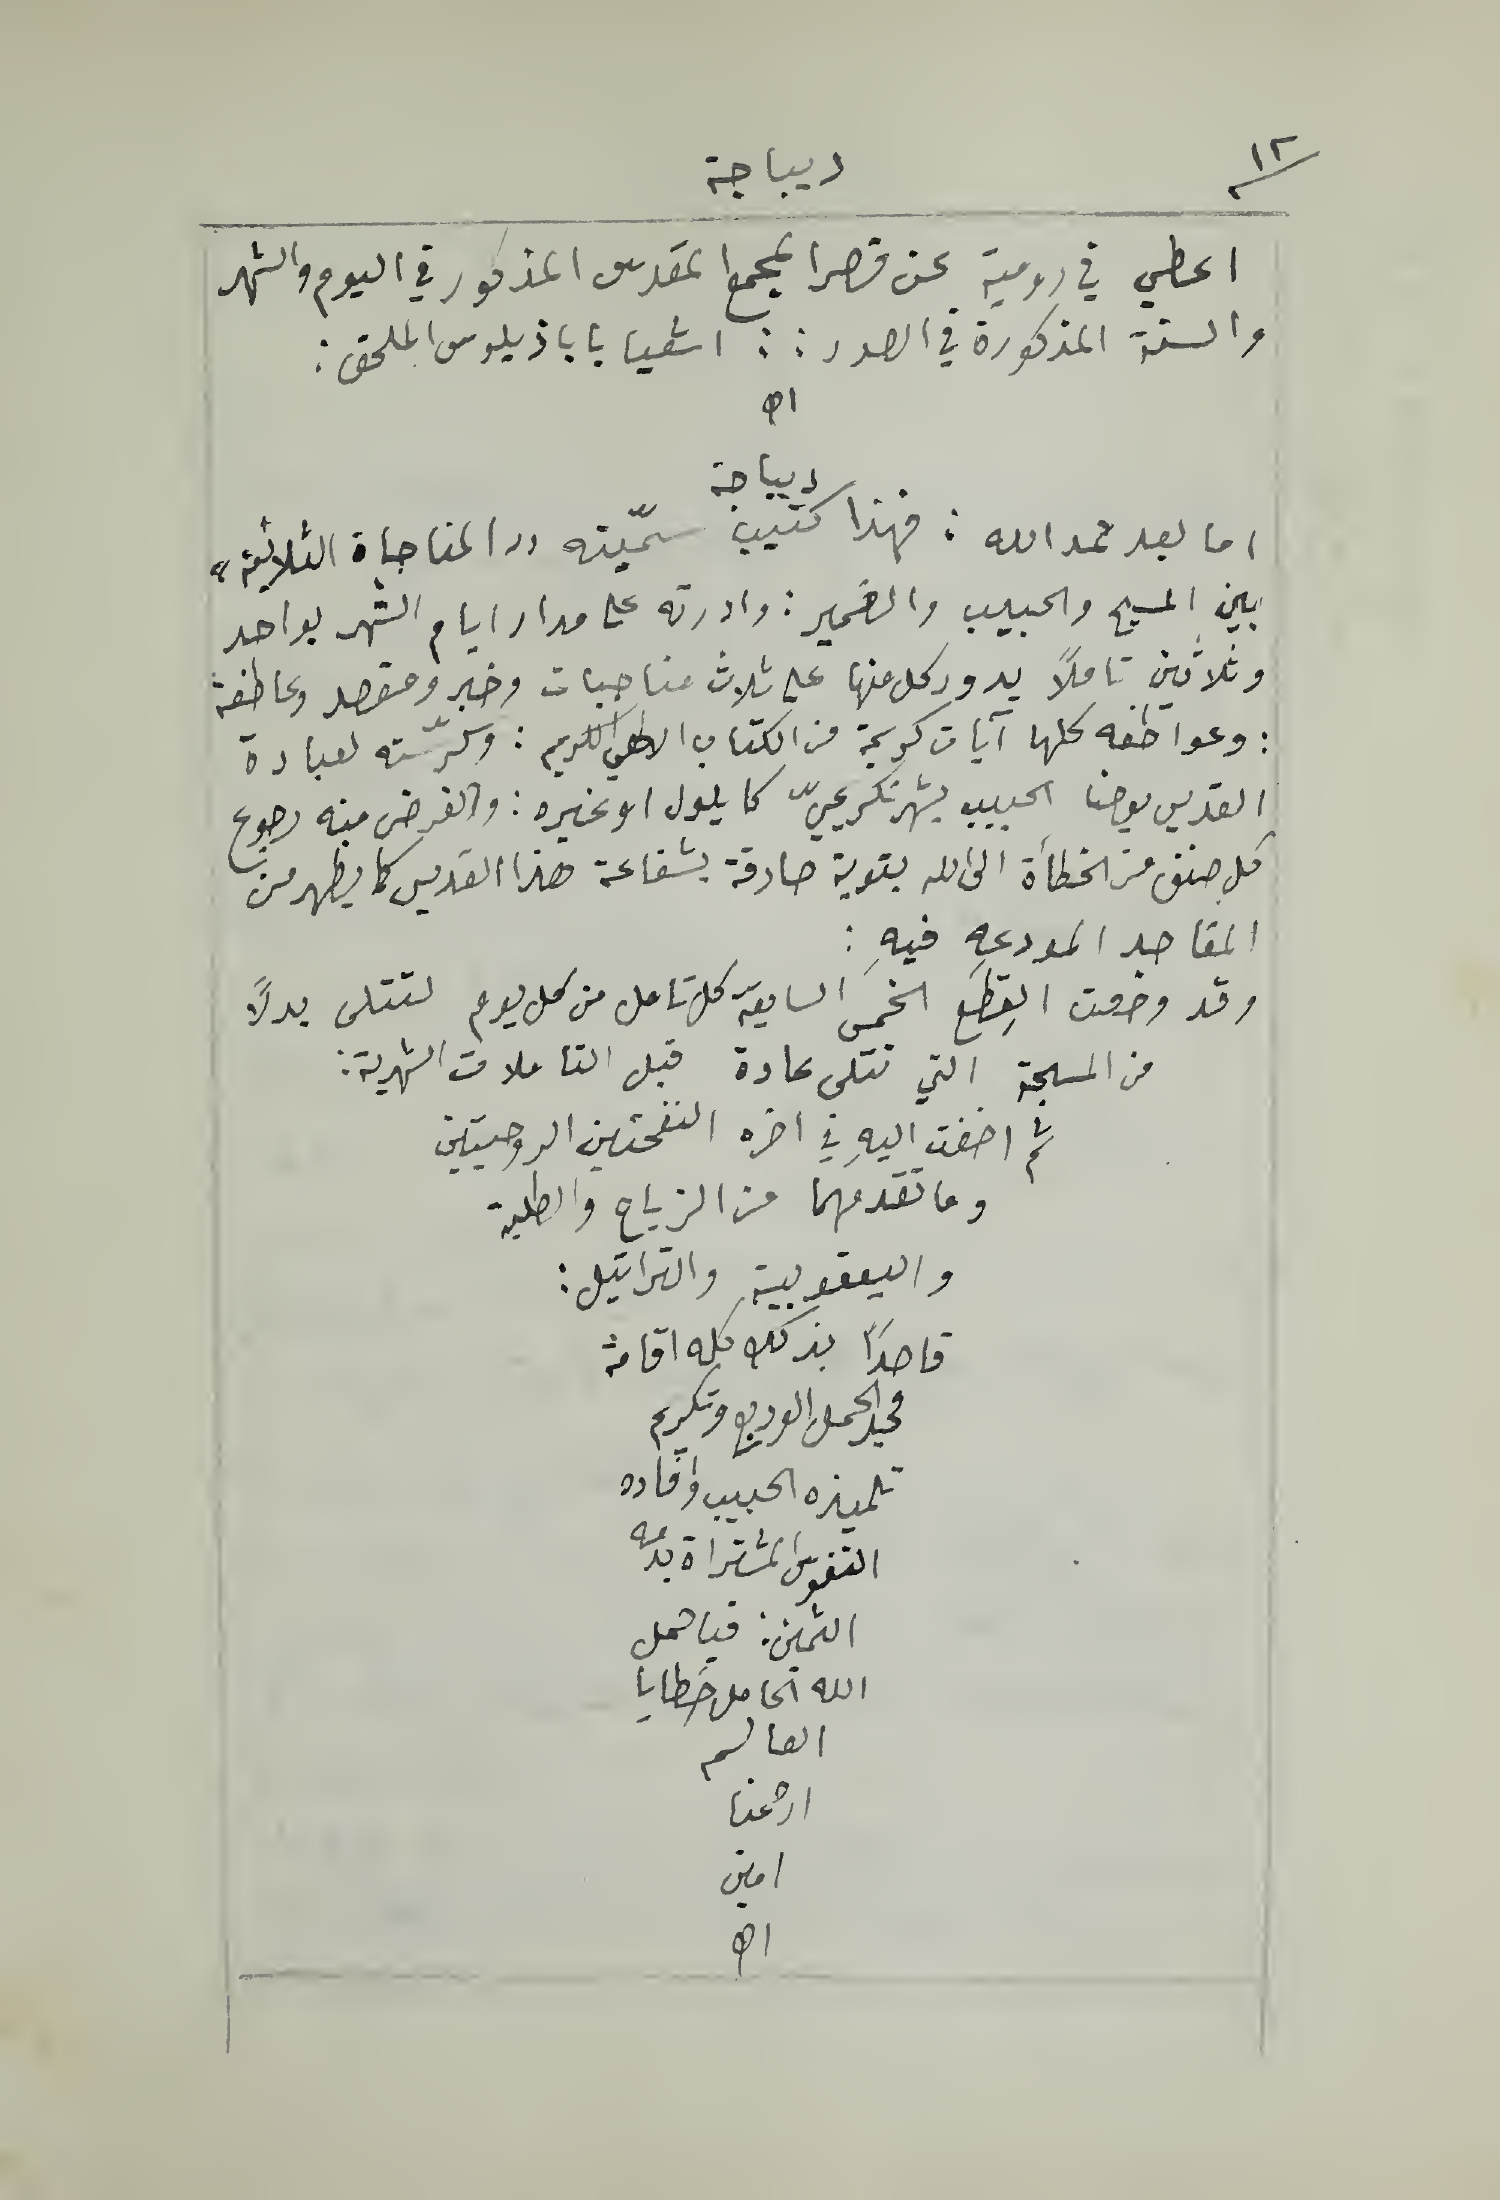 ١٢
ديباجة
اعطي في رومية عن قصر المجمع المقدس المذكور في اليوم والشهر
والسنة المذكورة في الصدر :: اشعيا باباذيلوس الملحق :
اه
ديباجة
اما بعد حمد الله : فهذا كتيب سمّيته "المناجاة الثلاثية"
بين المسيح والحبيب والضمير : وادرته على مدار ايام الشهر بواحد
وثلاثين تاملاً يدور كل منها على ثلاث مناجيات وخبر ومقصد وعاطفة
: وعواطفه كلها آيات كريمة من الكتاب الالهي الكريم : وكرّسته لعبادة
القديس يوحنا الحبيب بشهر تكريميّ كايلول او غيره : والغرض منه رجوع
كل صنف من الخطأة الى الله بتوبة صادقة بشفاعة هذا القديس كما يظهر من
المقاصد المودعه فيهِ :
وقد وضعت القِطَع الخمس السابقة كل تامل من كل يوم لتتلى بدلاً
من المسبحة التي تتلى عادة قبل التاملات الشهرية :
ثم اضفت اليهِ في اخره النفحتين الروحيتين
وما تقدمهما من الزياح والطلبة
واليعقوبية والتراتيل :
قاصدًا بذلك كله اقامة
مجد الحمل الوديع وتكريم
تلميذه الحبيب وافاده
النفوس المشتراة بدمه
الثمين : فيا حمل
الله الحامل خطايا
العالم
ارحمنا
امين
اه